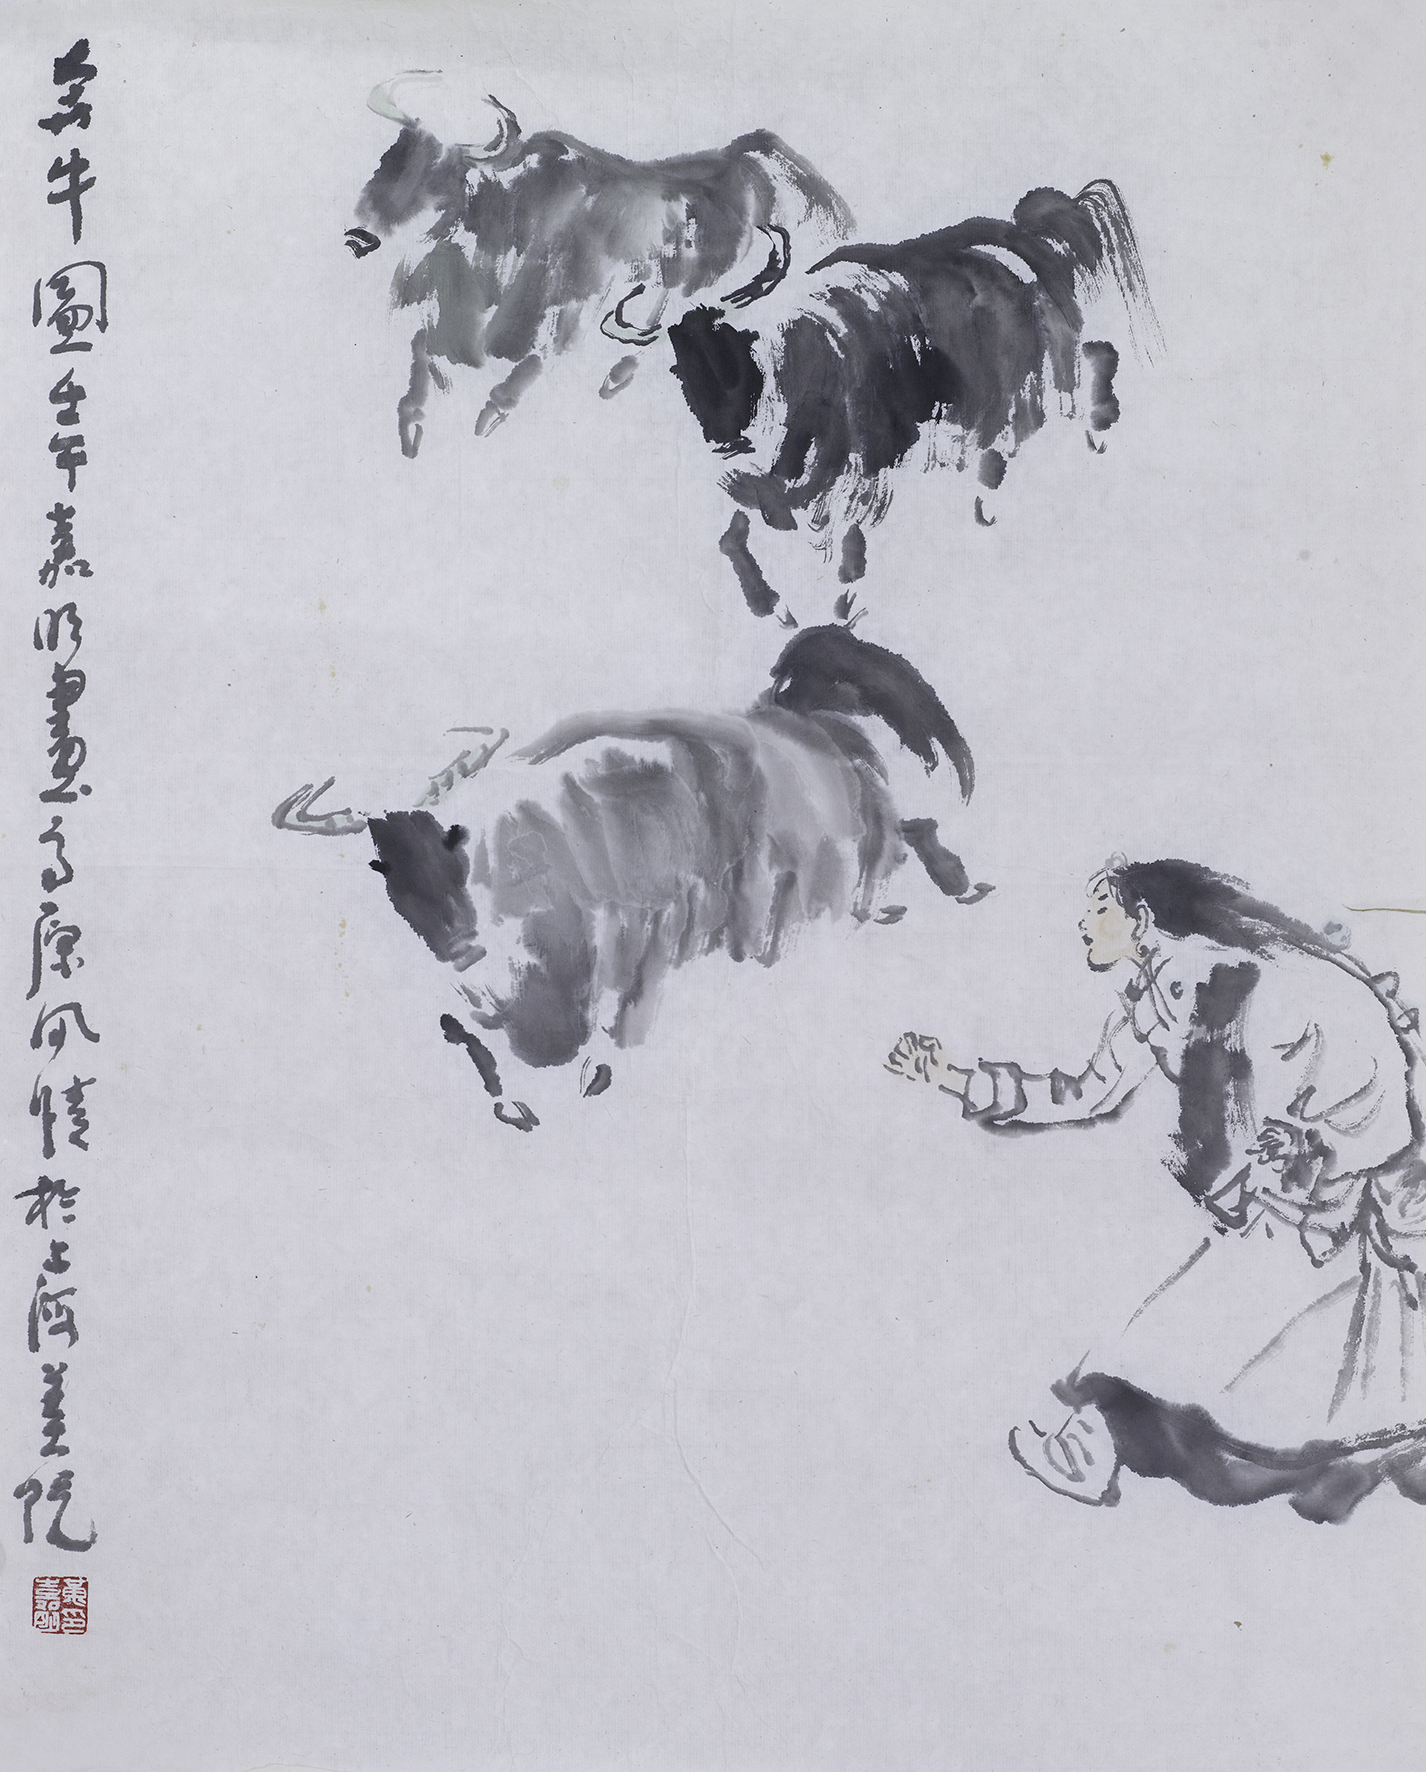 奔牛圖壬午嘉明畫高原風情於上海美院
黃印嘉明